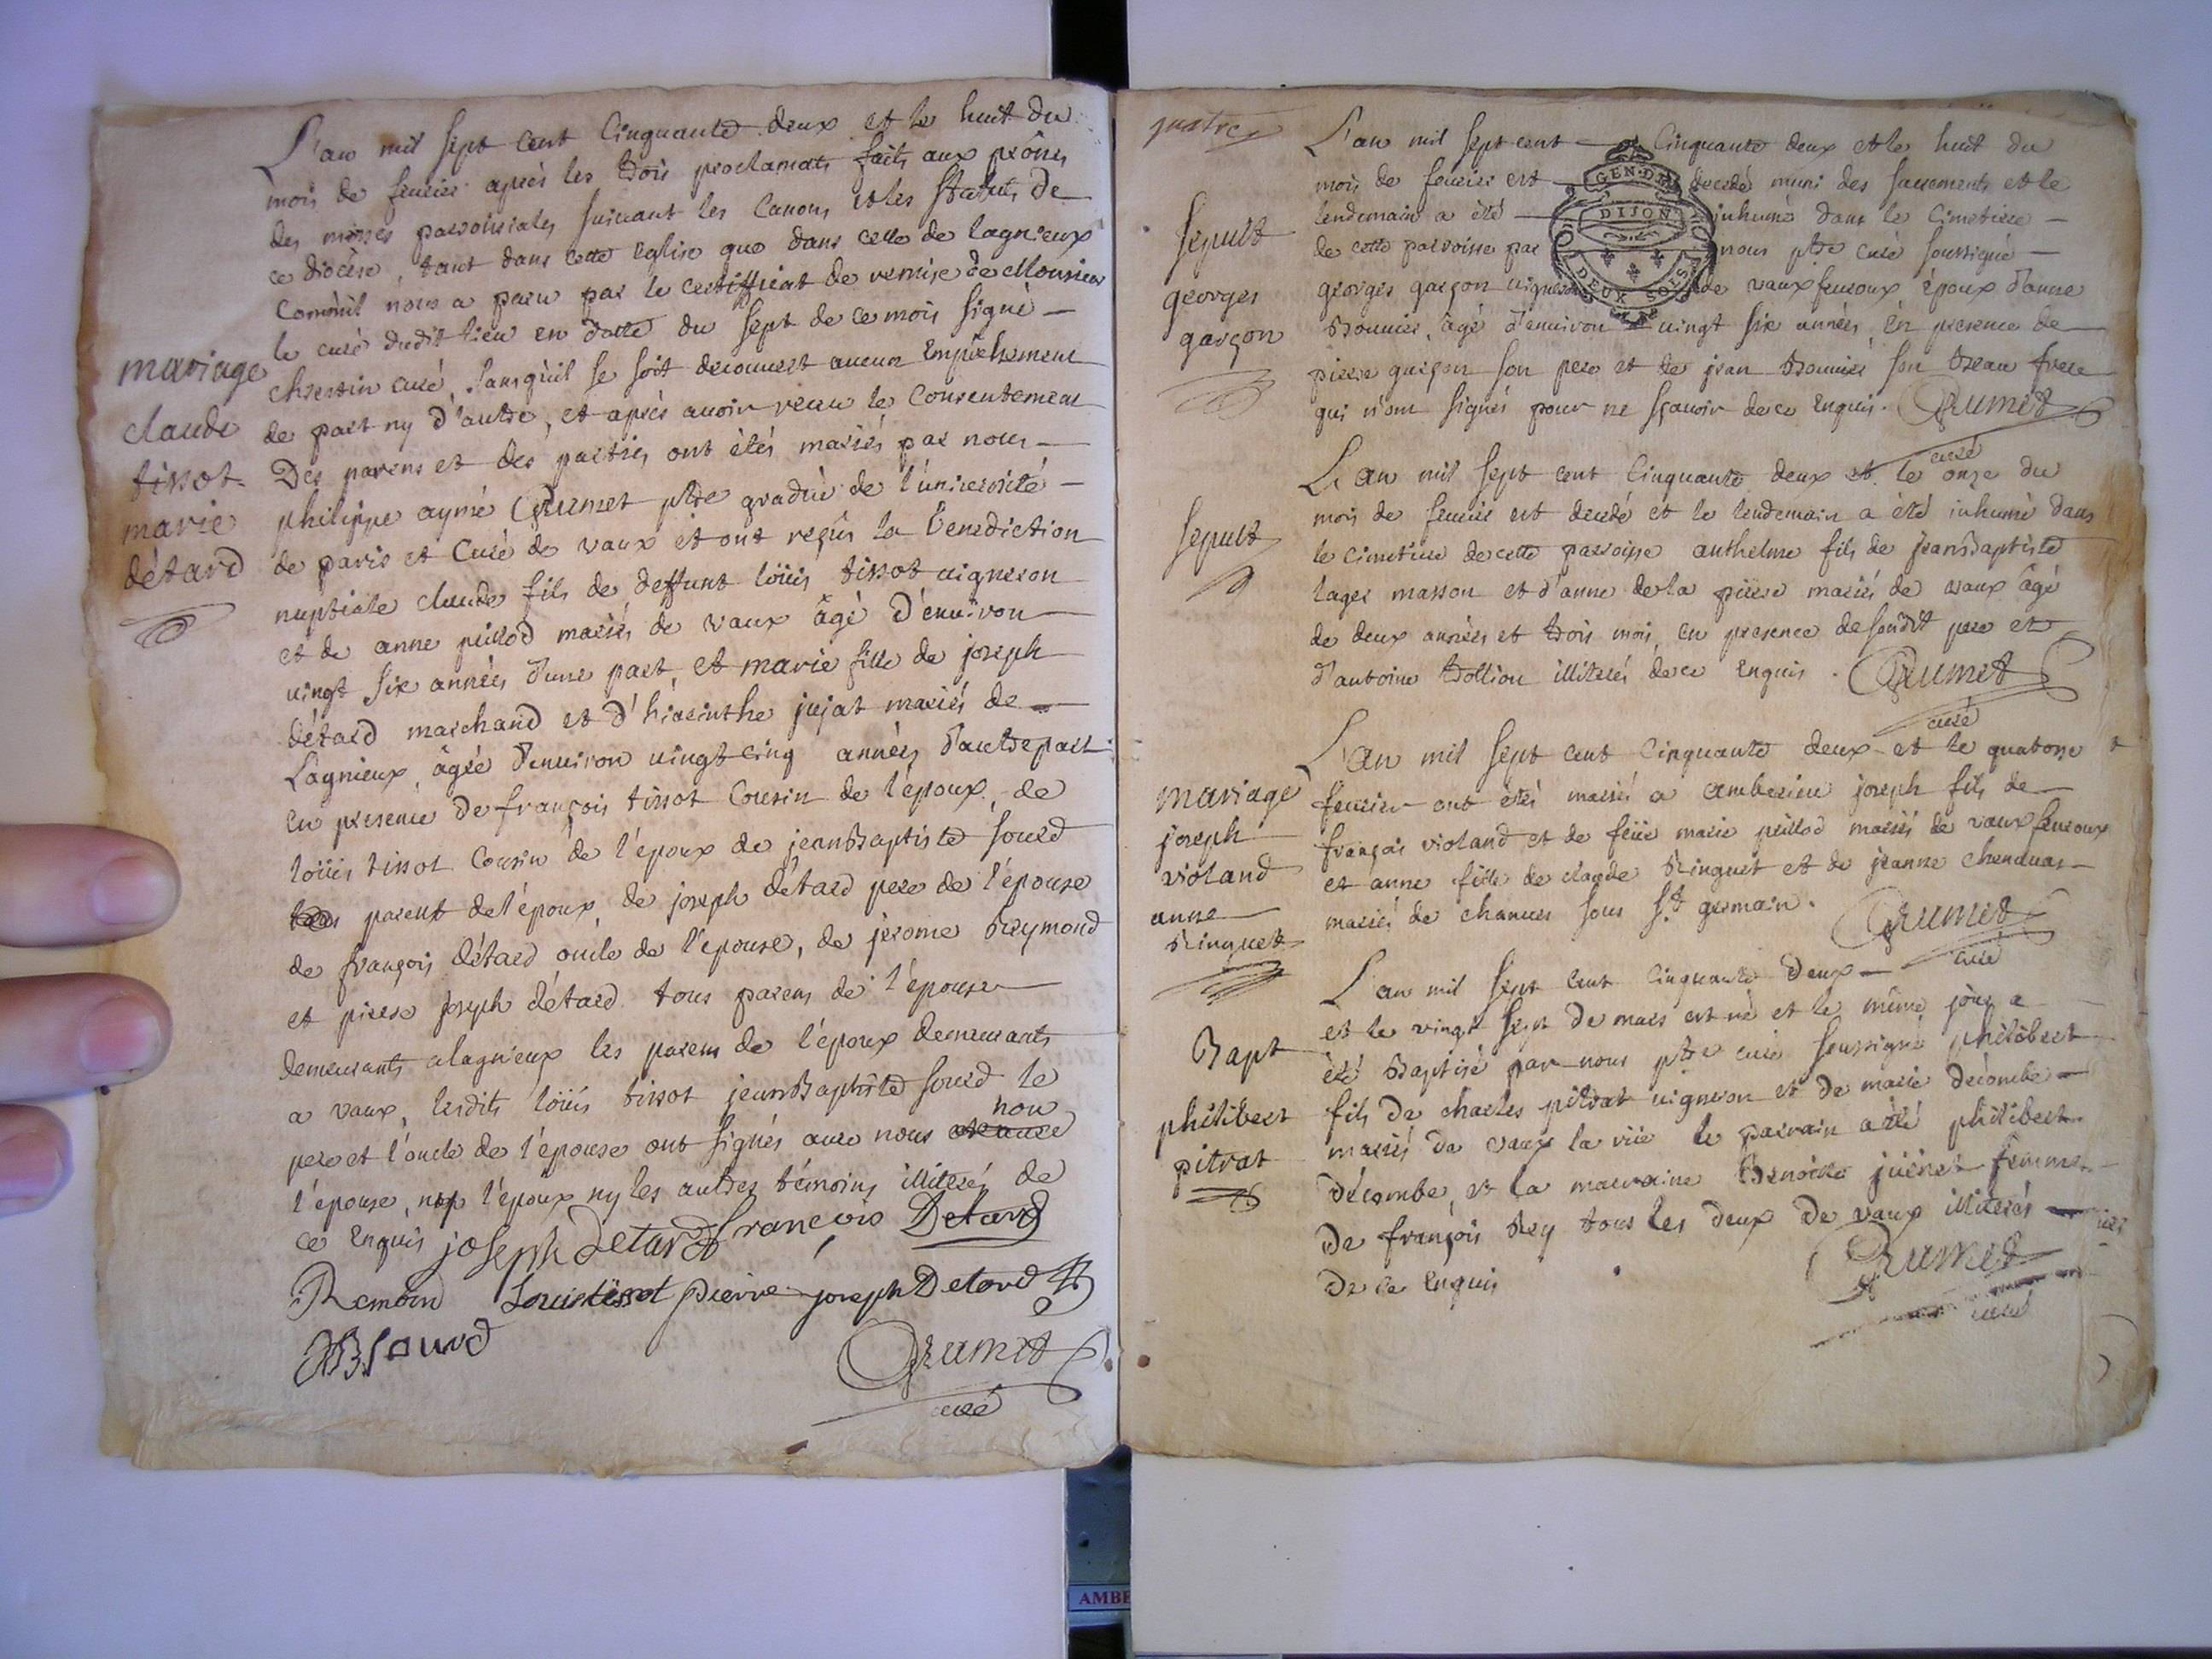 L'an mil sept cent cinquante deux et le huit du
mois de feurier après les trois proclamats faits aux prônes
des messes parroissiales suiuant les canons et les statuts de
ce diocèse, tant dans cette eglise que dans celle de lagnieux
comm'il nous a paru par le certifficat de remise de Monsieur
le curé dudit lieu en datte du sept de ce mois signé —
curé, sans qu'il se soit decouuert aucun empêchement
de part ny d'autre, et après auoir receu le consentement
Des parens et des parties ont étés mariés par nous —
philippe aymé Grumet ptre gradué de l'uniuersité —
de paris et Curé de vaux et ont reçus la benediction
nuptiale claude fils de deffunt loüis tissot uigneron
et de anne peillod mariés de vaux âgé d'enuiron —
uingt six années d'une part, et marie fille de joseph
détard marchand et d'hiacinthe jujat mariés de —
Lagnieux, âgée d'enuiron uingt cinq années d'autre part
en presence de françois tissot cousin de l'époux, de
loüis tissot cousin de l'époux de jean Baptiste sourd
parent de l'époux, de joseph détard pere de l'épouse
de françois détard oncle de l'épouse, de jerome Reymond
et pierre joseph détard tous parens de l'épouse —
demeurants a lagnieux les parens de l'époux demeurants
a vaux, lesdits loüis tissot jean Baptiste sourd le
pere et l'oncle de l'épouse ont signés auec nous non
l'épouse, ny l'époux ny les autres témoins illiterés de
ce enquis joseph Detard françois Detard
Remond Louis tissot pierre joseph Detard
JB sourd Grumet
curé
mariage
claude
tissot
marie
détard
L'an mil sept cent — cinquante deux et le huit du
mois de feurier est — decedé muni des sacrements et le
lendemain a été — inhumé dans le cimetiere —
de cette parroisse par nous ptre curé soussigné —
georges garçon uigneron de vaux feuroux époux d'anne
Bonnier, âgé d'enuiron uingt six années, en presence de
pierre garçon son pere et de jean Bonnier son Beau frere
qui n'ont signés pour ne sçauoir de ce enquis. Grumet
curé
sepult
georges
garçon
GEN DE
DIJON
DEUX SOLS
L'an mil sept cent cinquante deux et le onze du
mois de feurier est decedé et le lendemain a été inhumé dans
le cimetiere de cette parroisse anthelme fils de jean Baptiste
lager masson et d'anne de la pierre mariés de vaux âgé
de deux années et trois mois, en presence de sondit pere et
d'antoine tollion illiterés de ce enquis. Grumet
curé
sepult
L'an mil sept cent cinquante deux et le quatorze
feurier ont étés mariés a amberieu joseph fils de —
françois violand et de feüe marie peillod mariés de vaux feuroux
et anne fille de claude Ringuet et de jeanne chenauas —
mariés de chanues sous St germain. Grumet
curé
mariage
joseph
violand
anne
Ringuet
L'an mil sept cent cinquante deux —
et le vingt sept de mars est né et le même jour a
été Baptisé par nous ptre curé soussigné philibert
fils de charles pitrat uigneron et de marie décombe —
mariés de vaux la viie le parrain a été philibert
décombe, et la marraine Benoite femme
de françois Rey tous les deux de vaux illiterés —
de ce enquis Grumet
curé
Bapt
philibert
pitrat